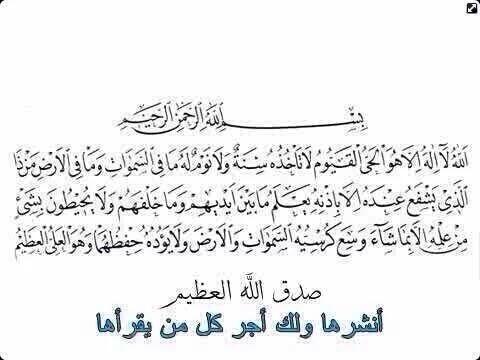 بِسْمِ اللَّهِ الرَّحْمَنِ الرَّحِيمِ
اللَّهُ لَا إِلَهَ إِلَّا هُوَ الْحَيُّ الْقَيُّومُ لَا تَأْخُذُهُ سِنَةٌ وَلَا نَوْمٌ لَهُ مَا فِي السَّمَوَاتِ وَمَا فِي الْأَرْضِ مَنْ ذَا
الَّذِي يَشْفَعُ عِنْدَهُ إِلَّا بِإِذْنِهِ يَعْلَمُ مَا بَيْنَ أَيْدِيهِمْ وَمَا خَلْفَهُمْ وَلَا يُحِيطُونَ بِشَيْءٍ
مِنْ عِلْمِهِ إِلَّا بِمَا شَاءَ وَسِعَ كُرْسِيُّهُ السَّمَوَاتِ وَالْأَرْضَ وَلَا يَؤُدُهُ حِفْظُهُمَا وَهُوَ الْعَلِيُّ الْعَظِيمُ
صدق الله العظيم
أنشرها ولك أجر كل من يقرأها